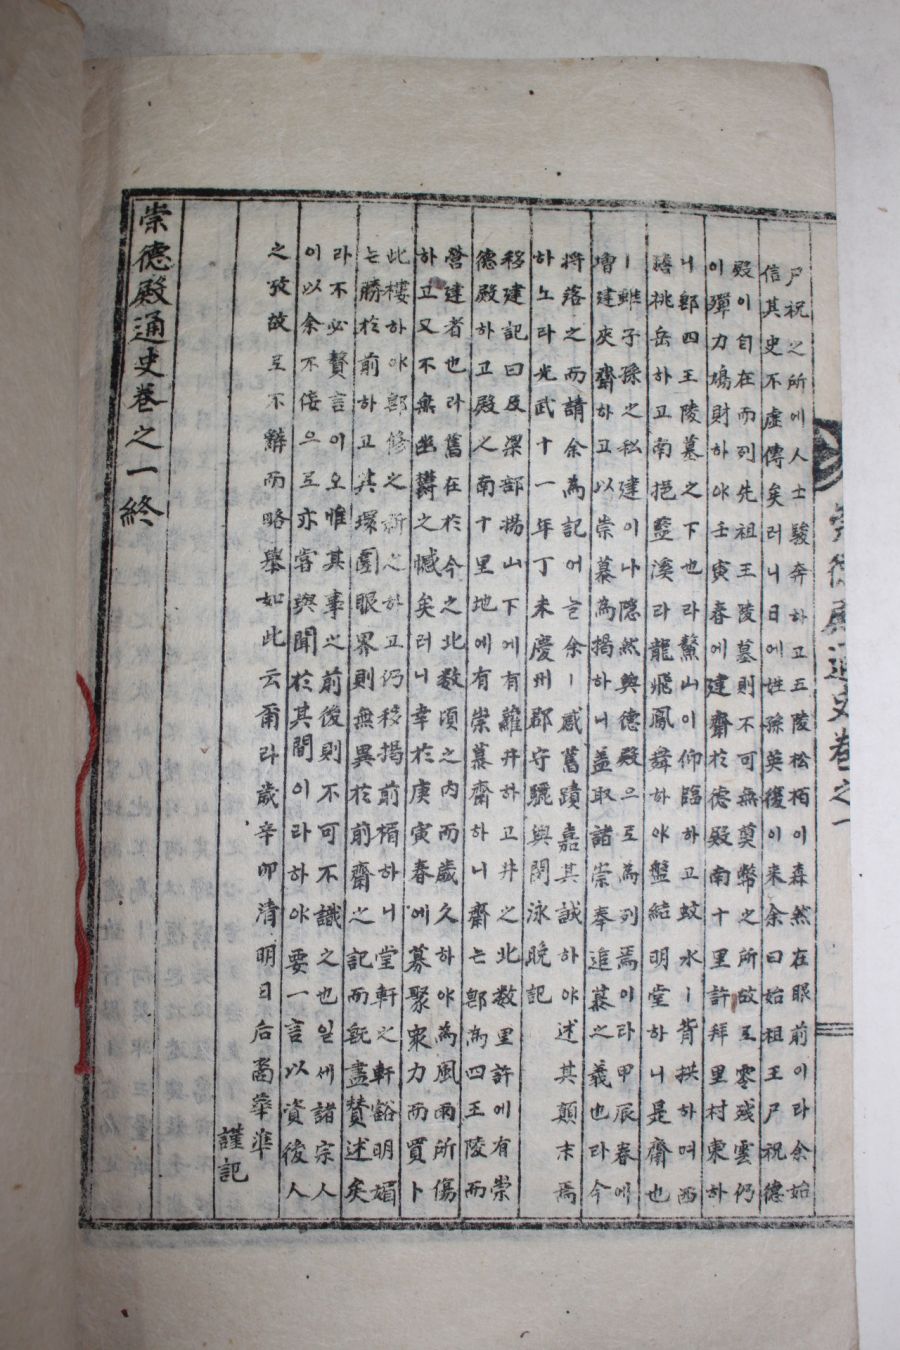 尸祝之所에人士駿奔하고五陵松栢이森然在眼前이라余始
信其史不虛傳矣러니日에姓孫英復이來余曰始祖王尸祝德
殿이自在而列先祖王陵墓則不可無奠幣之所故로零殘雲仍
이殫力鳩財하야壬寅春에建齋於德殿南十里許拜里村東하
니郎四王陵墓之下也라鰲山이仰臨하고蚊水ㅣ背拱하며西
瞻祧岳하고南挹溪라龍飛鳳하야盤結明堂하니是齋也
ㅣ雖子孫之私建이나隱然與德殿으로爲列焉이라甲辰春에
增建夾齋하고以崇慕爲揭하니盖取諸崇奉追慕之義也라今
將落之而請余爲記어늘余ㅣ感舊蹟嘉其誠하야述其顚末焉
하노라光武十一年丁未慶州郡守驪興閔泳晩記
移建記曰及梁部揚山下에有蘿井하고井之北數里許에有崇
德殿하고殿之南十里地에有崇慕齋하니齋는郎爲四王陵而
營建者也라舊在於今之北數頃之內而歲久하야爲風雨所傷
하고又不無幽鬱之憾矣러니幸於庚寅春에募聚衆力而買卜
此樓하야修之新之하고仍移揭前楣하니堂軒之軒豁明媚
는勝於前하고其環圍眼界則無異於前齋之記而旣盡賛述矣
라不必贅言이오惟其事之前後則不可不識之也일세諸宗人
이以余不侫으로亦嘗與聞於其間이라하야要一言以資後人
之攷故로不辭而略擧如此云爾라歲辛卯淸明日后裔華準
謹記
崇德殿通史卷之一終
崇德殿通史卷之一